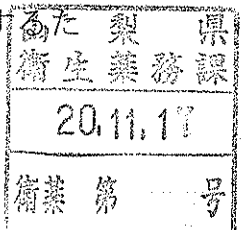 けるた
梨県
衛生薬務課
20.11.1
衛薬 第 号